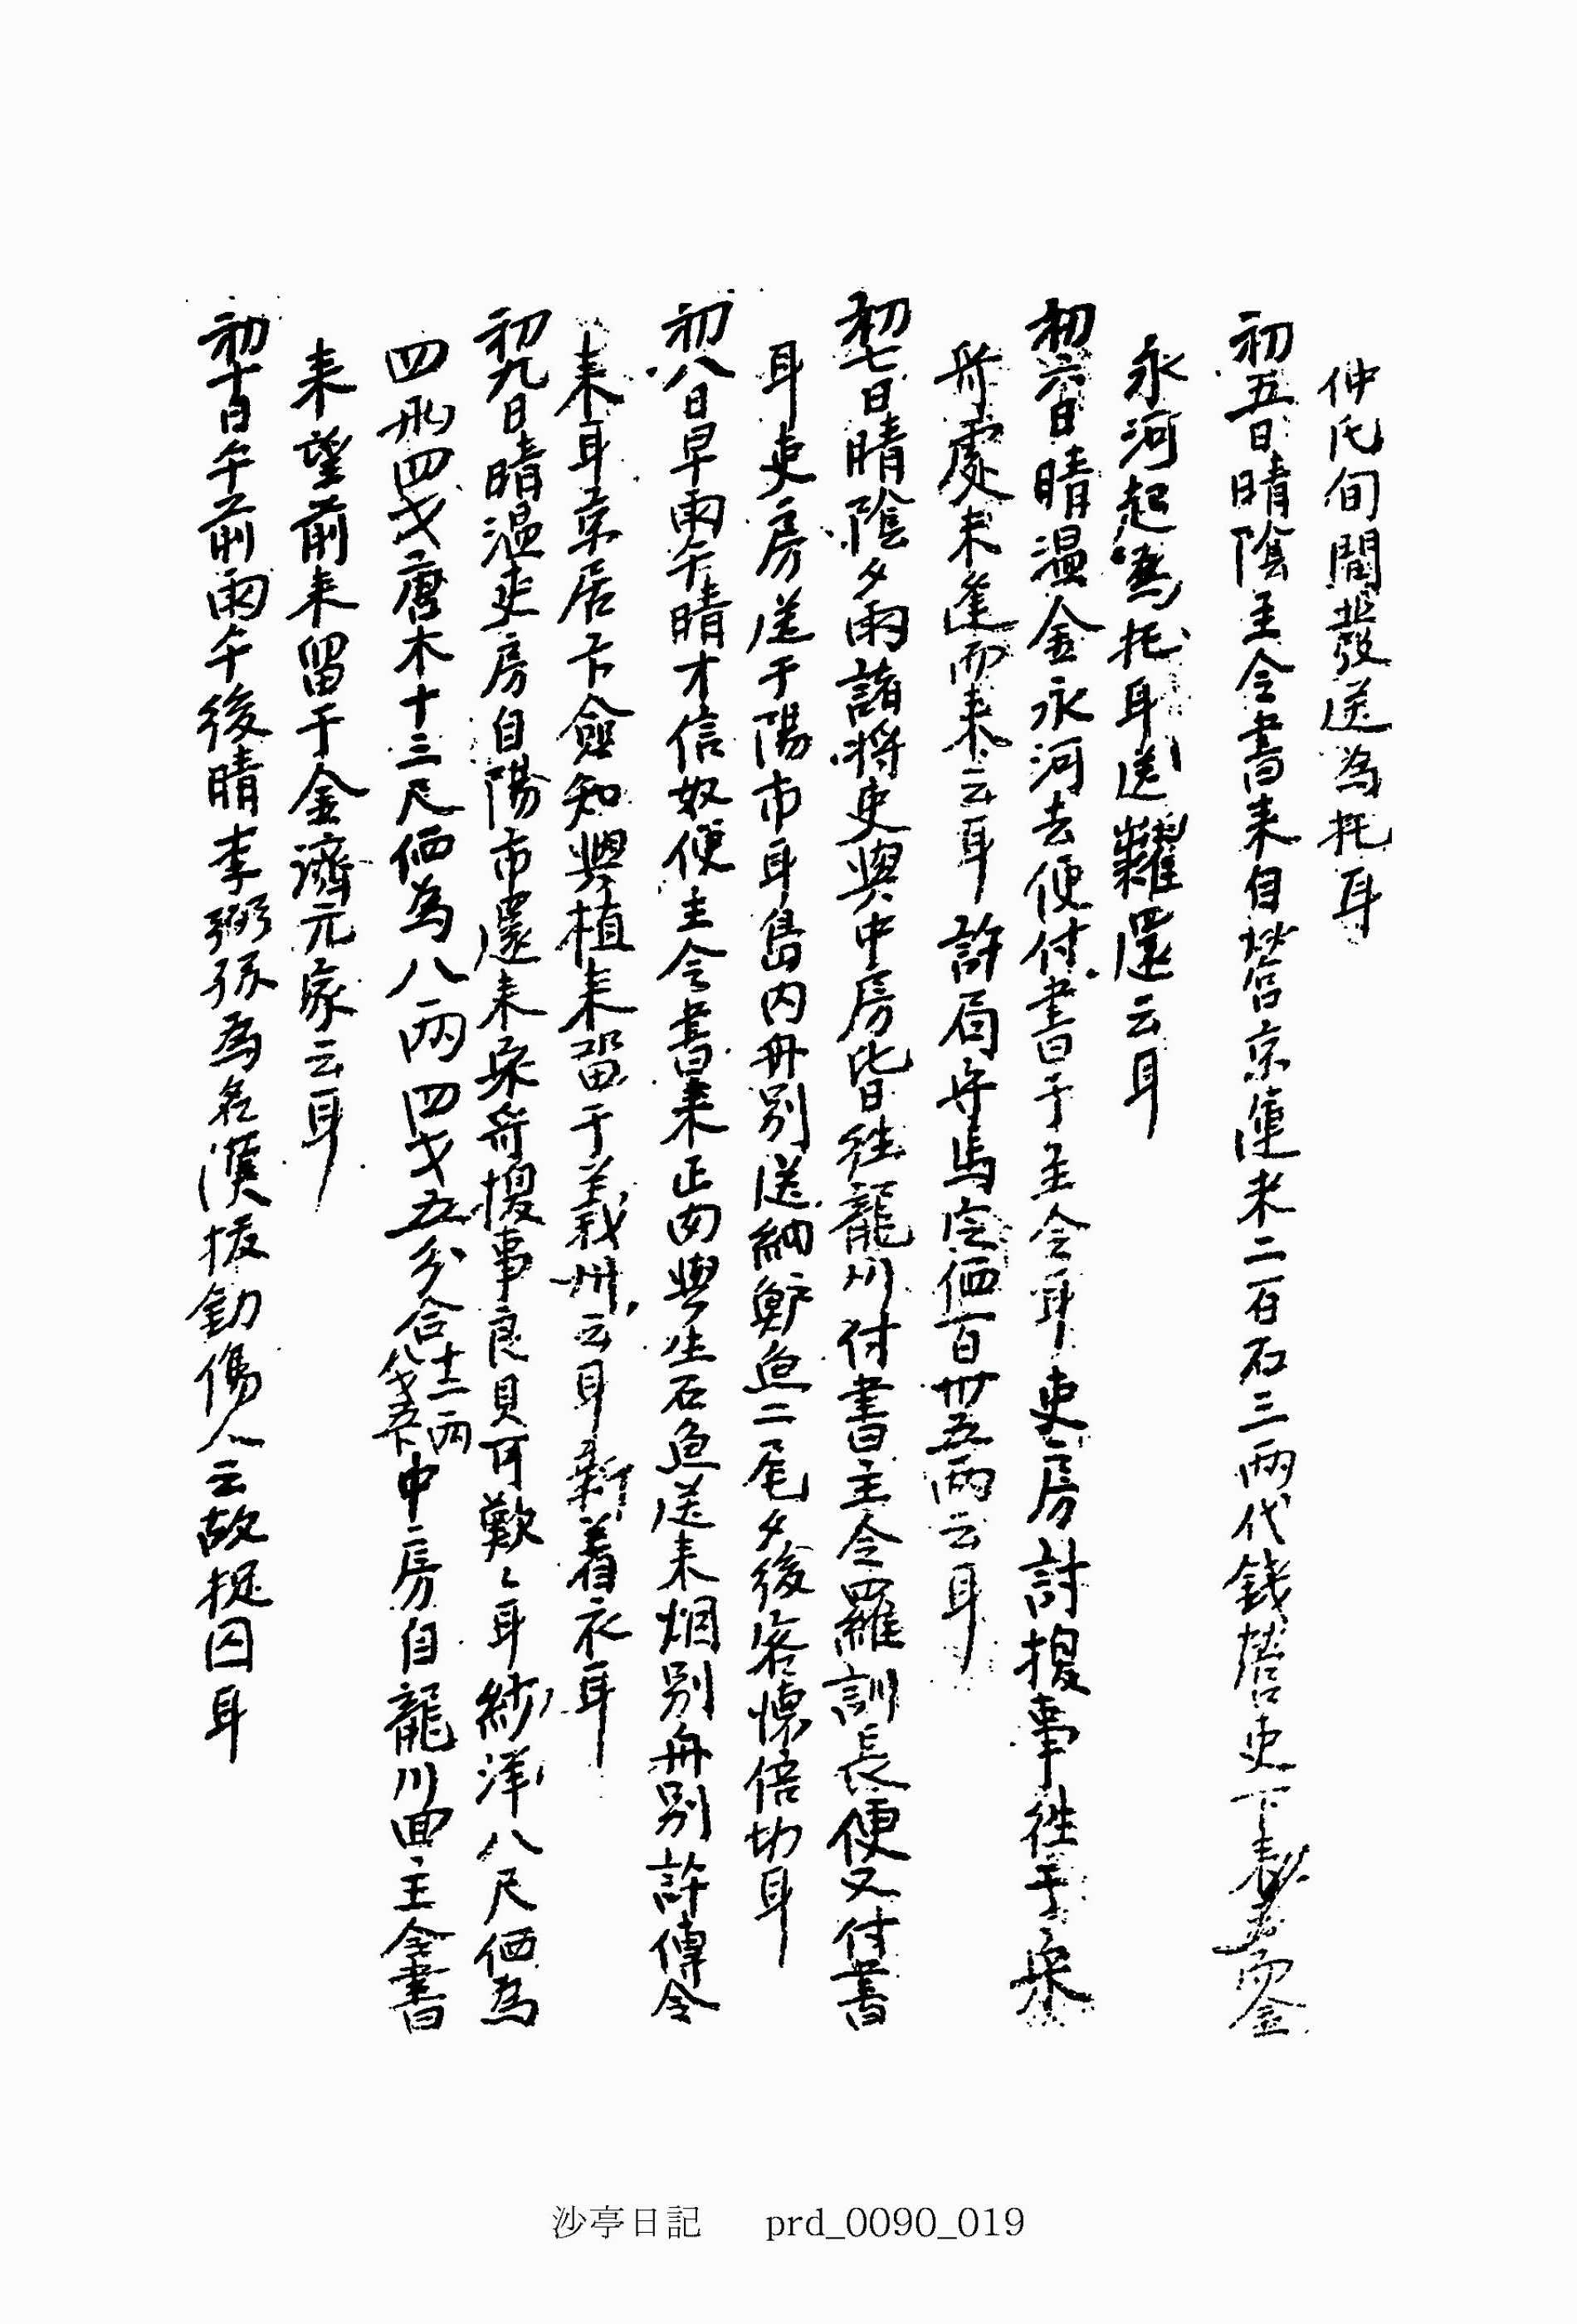 仲氏旬間發送為托耳
初五日晴陰主令書来自營京運米二百石三両代錢營吏下製書而金
永河起馬托耳送糶還云耳
初六日晴温金永河去便付書于主令耳吏房討捜事往于梁
舟處未逢而来云耳許局舟馬它価百卅五両云耳
初七日晴陰夕雨諸将吏與中房皆往龍川付書主令羅訓長便又付書
耳吏房送于陽市耳島内舟別送納鰣魚二尾夕後客懐倍切耳
初八日早雨午晴才信奴便主令書来正肉與生石魚送来烟別舟別許傳令
来耳京居卞僉知興植来留于義州云耳新着衣耳
初九日晴温吏房自陽市還来梁舟捜事良貝可歎〻耳紗洋八尺価為
四両四戔唐木十三尺価為八両四戔五分合十二両八戔五卜中房自龍川回主令書
来望前来留于金濟元家云耳
初十日午前雨午後晴李弼孫為名漢拔釰傷人云故捉囚耳
沙亭日記 prd_0090_019